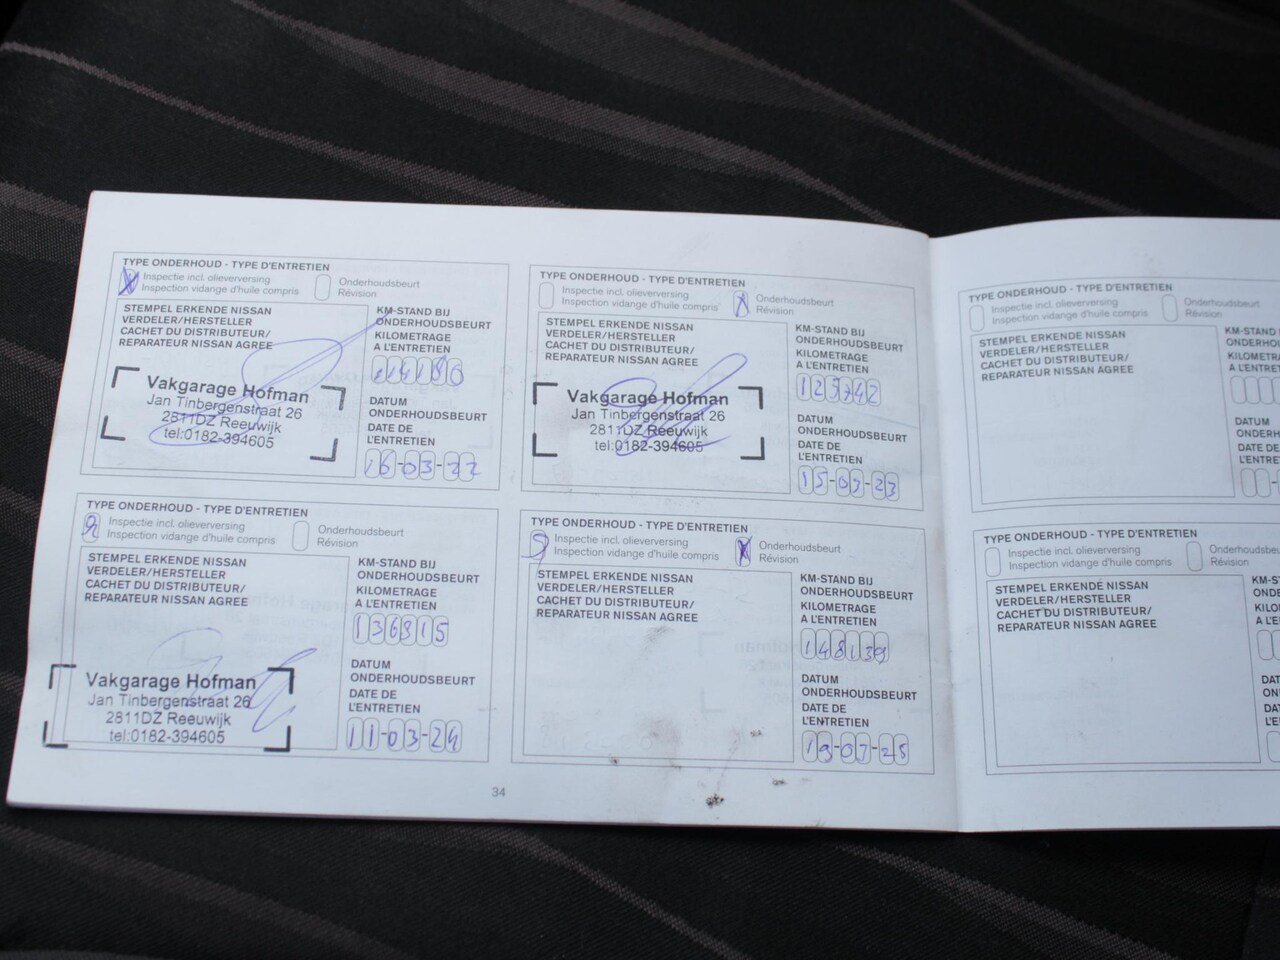 TYPE ONDERHOUD - TYPE D'ENTRETIEN
Inspectie incl. olieverversing
Inspection vidange d'huile compris
Onderhoudsbeurt
Révision
STEMPEL ERKENDE NISSAN
VERDELER/HERSTELLER
CACHET DU DISTRIBUTEUR/
REPARATEUR NISSAN AGREE
Vakgarage Hofman
Jan Tinbergenstraat 26
2811DZ Reeuwijk
tel:0182-394605
KM-STAND BIJ
ONDERHOUDSBEURT
KILOMETRAGE
A L'ENTRETIEN
DATUM
ONDERHOUDSBEURT
DATE DE
L'ENTRETIEN
16-03-22
TYPE ONDERHOUD - TYPE D'ENTRETIEN
Inspectie incl. olieverversing
Inspection vidange d'huile compris
X
Onderhoudsbeurt
Révision
STEMPEL ERKENDE NISSAN
VERDELER/HERSTELLER
CACHET DU DISTRIBUTEUR/
REPARATEUR NISSAN AGREE
Vakgarage Hofman
Jan Tinbergenstraat 26
2811DZ Reeuwijk
tel:0182-394605
KM-STAND BIJ
ONDERHOUDSBEURT
KILOMETRAGE
A L'ENTRETIEN
125742
DATUM
ONDERHOUDSBEURT
DATE DE
L'ENTRETIEN
TYPE ONDERHOUD - TYPE D'ENTRETIEN
Inspectie incl. olieverversing
Inspection vidange d'huile compris
Onderhoudsbeurt
Révision
STEMPEL ERKENDE NISSAN
VERDELER/HERSTELLER
CACHET DU DISTRIBUTEUR/
REPARATEUR NISSAN AGREE
Vakgarage Hofman
Jan Tinbergenstraat 26
2811DZ Reeuwijk
tel:0182-394605
KM-STAND BIJ
ONDERHOUDSBEURT
KILOMETRAGE
A L'ENTRETIEN
136815
DATUM
ONDERHOUDSBEURT
DATE DE
L'ENTRETIEN
11-03-24
TYPE ONDERHOUD - TYPE D'ENTRETIEN
Inspectie incl. olieverversing
Inspection vidange d'huile compris
Onderhoudsbeurt
Révision
STEMPEL ERKENDE NISSAN
VERDELER/HERSTELLER
CACHET DU DISTRIBUTEUR/
REPARATEUR NISSAN AGREE
KM-STAND BIJ
ONDERHOUDSBEURT
KILOMETRAGE
A L'ENTRETIEN
148139
DATUM
ONDERHOUDSBEURT
DATE DE
L'ENTRETIEN
34
TYPE ONDERHOUD - TYPE D'ENTRETIEN
Inspectie incl. olieverversing
Inspection vidange d'huile compris
Onderhoudsbeurt
Révision
STEMPEL ERKENDE NISSAN
VERDELER/HERSTELLER
CACHET DU DISTRIBUTEUR/
REPARATEUR NISSAN AGREE
KM-STAND
DATUM
DATE DE
TYPE ONDERHOUD - TYPE D'ENTRETIEN
Inspectie incl. olieverversing
Inspection vidange d'huile compris
Révision
STEMPEL ERKENDE NISSAN
VERDELER/HERSTELLER
CACHET DU DISTRIBUTEUR/
REPARATEUR NISSAN AGREE